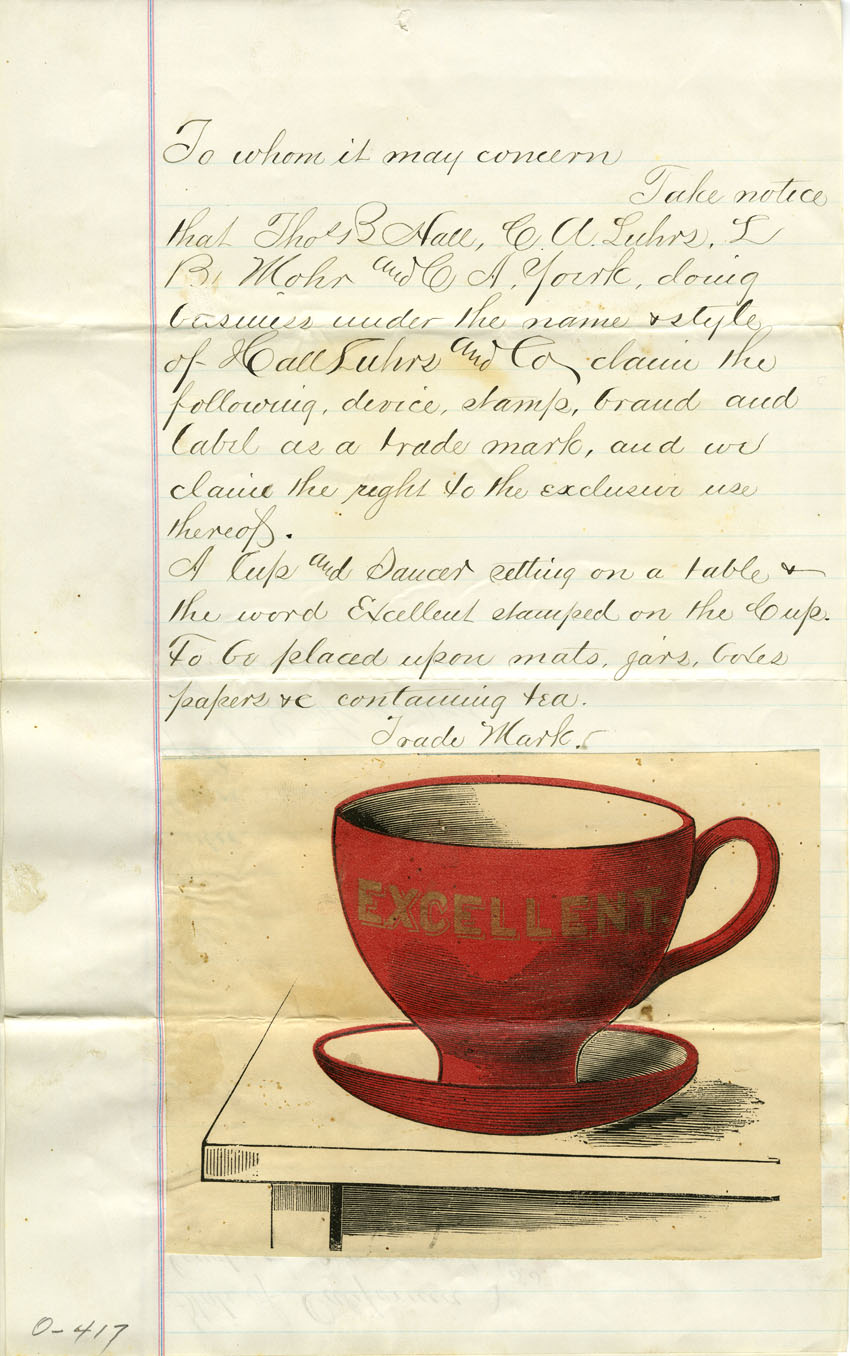 To whom it may concern
Take notice
that Thos B Hall, C. A. Luhrs, L
B, Mohr and C A, York, doing
business under the name & style
of Hall Luhrs and Co, claim the
following, device, stamp, brand and
label as a trade mark, and we
claim the right to the exclusive use
thereof.
A Cup and Saucer setting on a table &
the word Excellent stamped on the Cup.
To be placed upon mats, jars, boxes
papers &c containing tea.
Trade Mark.
EXCELLENT.
0-417